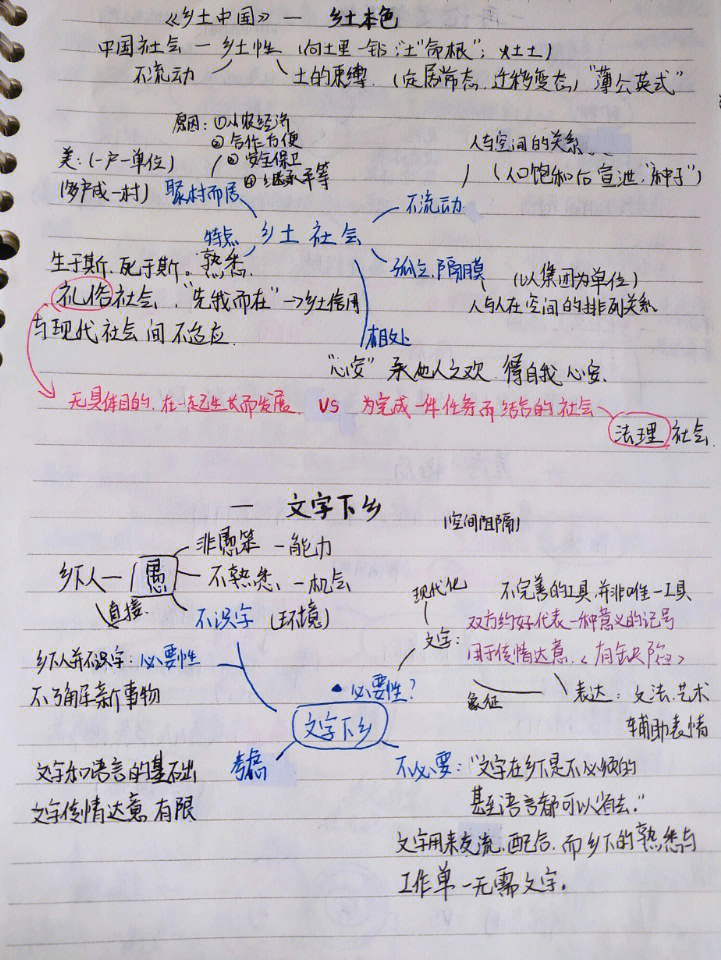 《乡土中国》— 乡土本色
中国社会 — 乡土性 (向土里一钻;土"命根";
不流动 土的束缚.(定居常态.迁移变态)"蒲公英式"
原因:①小农经济
②合作方便
③安全保卫
④继承平等
美:(一户一单位)
(多户成一村) 聚村而居
人与空间的关系
(人口饱和后宣泄,"种子")
不流动
特点 乡土社会
生于斯.死于斯。熟悉.
孤立.隔膜 (以集团为单位)
礼俗社会."先我而在"→乡土信用
人与人在空间的排列关系
与现代社会间不适应.
相处
"心安" 承他人之欢 得自我心安.
无具体目的.在一起生长而发展. VS 为完成一件任务而结合的社会
法理社会
— 文字下乡
(空间阻隔)
非愚笨 — 能力
乡下人 — 愚 — 不熟悉、— 机会
直接 不识字 (环境)
现代化
文字:
不完善的工具,并非唯一工具
双方约好代表一种意义的记号
用于传情达意.<有缺陷>
象征 表达:文法.艺术
辅助表情
乡下人并不识字:必要性
不了解新事物
•必要性?
文字下乡
文字和语言的基础出
文字传情达意 有限
不必要:"文字在乡下是不必须的
甚至语言都可以省去."
文字用来交流.配合.而乡下的熟悉与
工作单一无需文字。